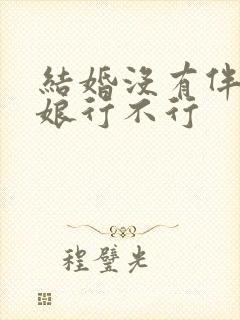 結婚沒有伴
娘行不行
程璧光